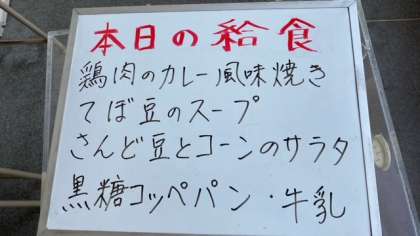 本日の給食
鶏肉のカレー風味焼き
てぼ豆のスープ
さんど豆とコーンのサラタ
黒糖コッペパン・牛乳